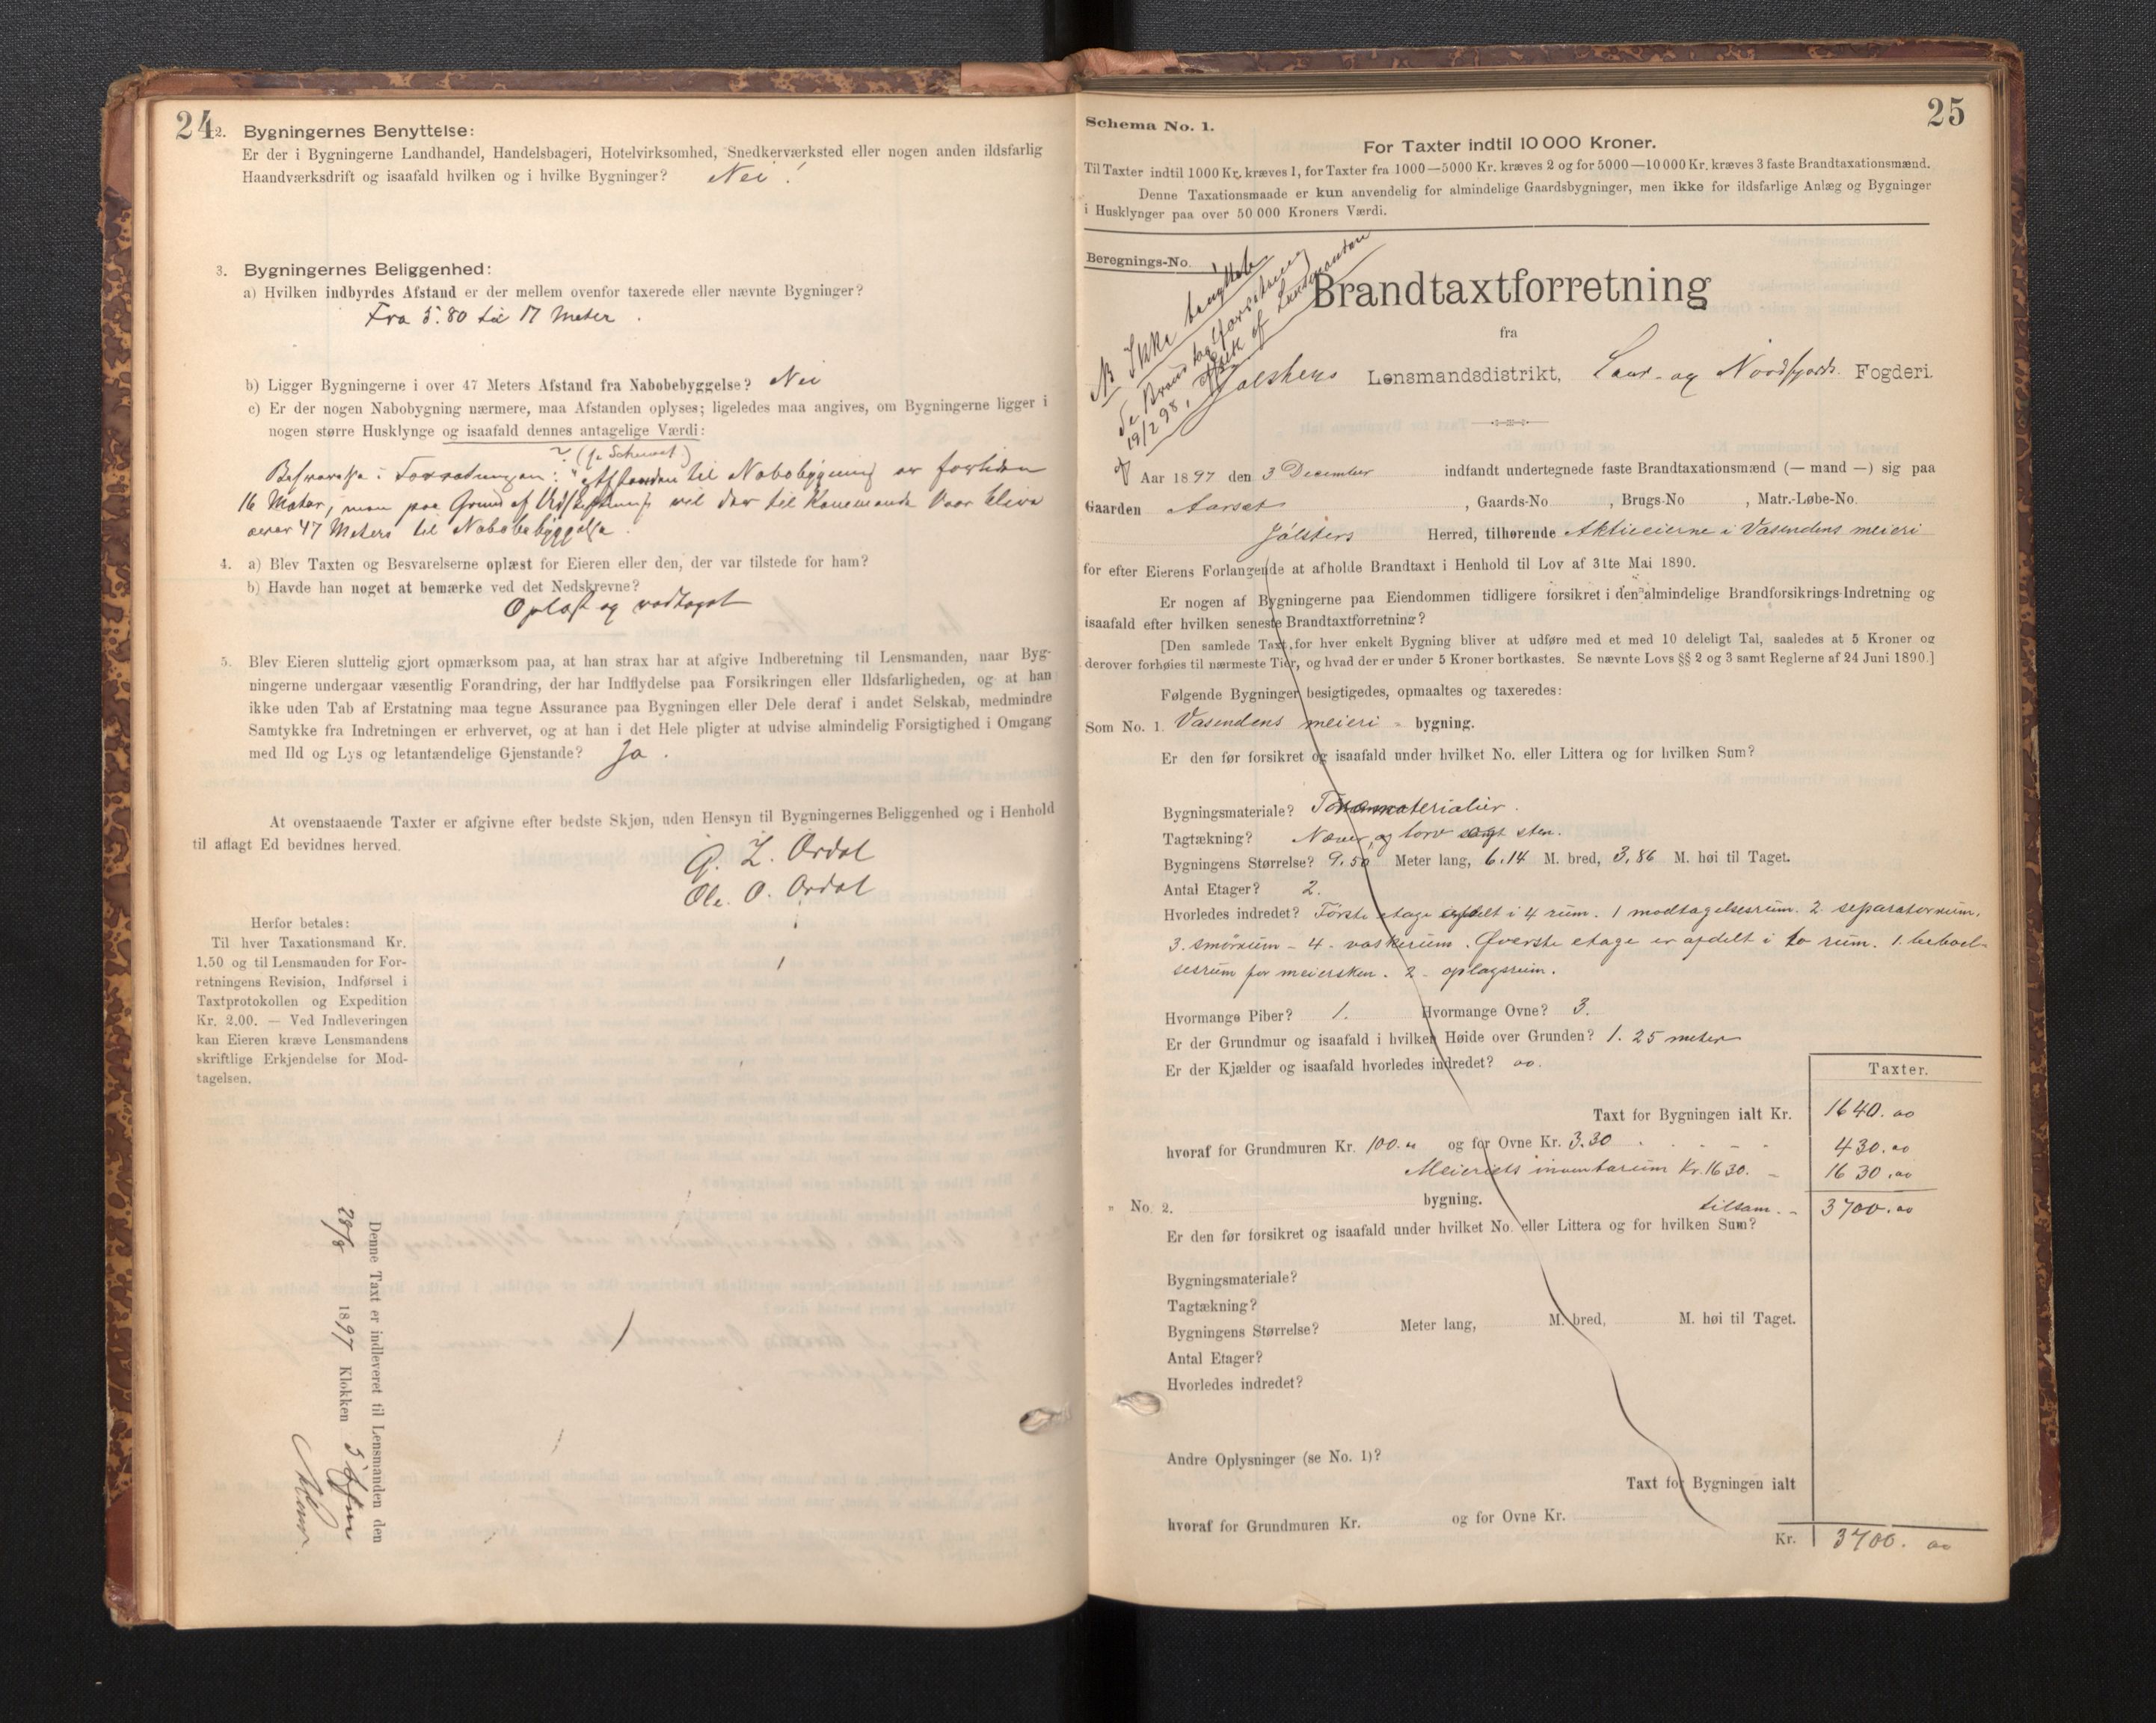 24
2. Bygningernes Benyttelse:
Er der i Bygningerne Landhandel, Handelsbageri, Hotelvirksomhed, Snedkerværksted eller nogen anden ildsfarlig
Haandværksdrift og isaafald hvilken og i hvilke Bygninger? Nei!
3. Bygningernes Beliggenhed:
a) Hvilken indbyrdes Afstand er der mellem ovenfor taxerede eller nævnte Bygninger?
Fra 5.80 til 17 Meter.
b) Ligger Bygningerne i over 47 Meters Afstand fra Nabobebyggelse? Nei
c) Er der nogen Nabobygning nærmere, maa Afstanden oplyses; ligeledes maa angives, om Bygningerne ligger i
nogen større Husklynge og isaafald dennes antagelige Værdi:
? (se Schemat.)
Besvarelse i Forretningen: "Afstanden til Nabobygning er fortiden
16 Meter, men paa Grund af Udskiftning vil der til kommende Vaar blive
over 47 Meters til Nabobebyggelse.
4. a) Blev Taxten og Besvarelserne oplæst for Eieren eller den, der var tilstede for ham?
b) Havde han noget at bemærke ved det Nedskrevne?
Oplæst og vedtaget
5. Blev Eieren sluttelig gjort opmærksom paa, at han strax har at afgive Indberetning til Lensmanden, naar Byg-
ningerne undergaar væsentlig Forandring, der har Indflydelse paa Forsikringen eller Ildsfarligheden, og at han
ikke uden Tab af Erstatning maa tegne Assurance paa Bygningen eller Dele deraf i andet Selskab, medmindre
Samtykke fra Indretningen er erhvervet, og at han i det Hele pligter at udvise almindelig Forsigtighed i Omgang
med Ild og Lys og letantændelige Gjenstande? Ja.
At ovenstaaende Taxter er afgivne efter bedste Skjøn, uden Hensyn til Bygningernes Beliggenhed og i Henhold
til aflagt Ed bevidnes herved.
Årdal
Ole. O. Årdal
Herfor betales:
Til hver Taxationsmand Kr.
1,50 og til Lensmanden for For-
retningens Revision, Indførsel i
Taxtprotokollen og Expedition
Kr. 2,00. — Ved Indleveringen
kan Eieren kræve Lensmandens
skriftlige Erkjendelse for Mod-
tagelsen.
Denne Taxt er indleveret til Lensmanden den
28/8 1897 Klokken 5
25
Schema No. 1.
For Taxter indtil 10 000 Kroner.
Til Taxter indtil 1000 Kr. kræves 1, for Taxter fra 1000—5000 Kr. kræves 2 og for 5000—10000 Kr. kræves 3 faste Brandtaxationsmænd.
Denne Taxationsmaade er kun anvendelig for almindelige Gaardsbygninger, men ikke for ildsfarlige Anlæg og Bygninger
i Husklynger paa over 50 000 Kroners Værdi.
Beregnings-No.
NB Ikke benyttet
19/2 98, af Lensmanden
Brandtaxtforretning
fra
Jølsters Lensmandsdistrikt, Sønd- og Nordfjords Fogderi.
Aar 1897 den 3 December indfandt undertegnede faste Brandtaxationsmænd (— mand —) sig paa
Gaarden Aarset, Gaards-No , Brugs-No , Matr.-Løbe-No.
Jølsters Herred, tilhørende Aktieeierne i Vasendens meieri
for efter Eierens Forlangende at afholde Brandtaxt i Henhold til Lov af 31te Mai 1890.
Er nogen af Bygningerne paa Eiendommen tidligere forsikret i den almindelige Brandforsikrings-Indretning og
isaafald efter hvilken seneste Brandtaxtforretning?
[Den samlede Taxt for hver enkelt Bygning bliver at udføre med et med 10 deleligt Tal, saaledes at 5 Kroner og
derover forhøies til nærmeste Tier, og hvad der er under 5 Kroner bortkastes. Se nævnte Lovs §§ 2 og 3 samt Reglerne af 24 Juni 1890.]
Følgende Bygninger besigtigedes, opmaaltes og taxeredes:
Som No. 1. Vasendens meieri - bygning.
Er den før forsikret og isaafald under hvilket No. eller Littera og for hvilken Sum?
Bygningsmateriale? Tømmermaterialier.
Tagtækning? Næver og torv samt sten.
Bygningens Størrelse? 9.50 Meter lang, 6.14 M. bred, 3,86 M. høi til Taget.
Antal Etager? 2.
Hvorledes indredet? Første etage afdelt i 4 rum. 1 modtagelsesrum. 2. separatorrum.
3. smørrum - 4. vaskerum. Øverste etage er afdelt i to rum. 1. beboel-
sesrum for meiersken. 2 - oplagsrum.
Hvormange Piber? 1. Hvormange Ovne? 3.
Er der Grundmur og isaafald i hvilken Høide over Grunden? 1.25 meter
Er der Kjælder og isaafald hvorledes indredet? oo.
Taxter.
Taxt for Bygningen ialt Kr. 1640.oo
hvoraf for Grundmuren Kr. 100." og for Ovne Kr. 3.30 430.oo
Meieriets inventarium Kr. 1630. - 1630.oo
" No. 2. bygning. tilsam. - 3700.oo
Er den før forsikret og isaafald under hvilket No. eller Littera og for hvilken Sum?
Bygningsmateriale?
Tagtækning?
Bygningens Størrelse? Meter lang, M. bred, M. høi til Taget.
Antal Etager?
Hvorledes indredet?
Andre Oplysninger (se No. 1)?
Taxt for Bygningen ialt
hvoraf for Grundmuren Kr. og for Ovne Kr.
Kr. 3700. oo